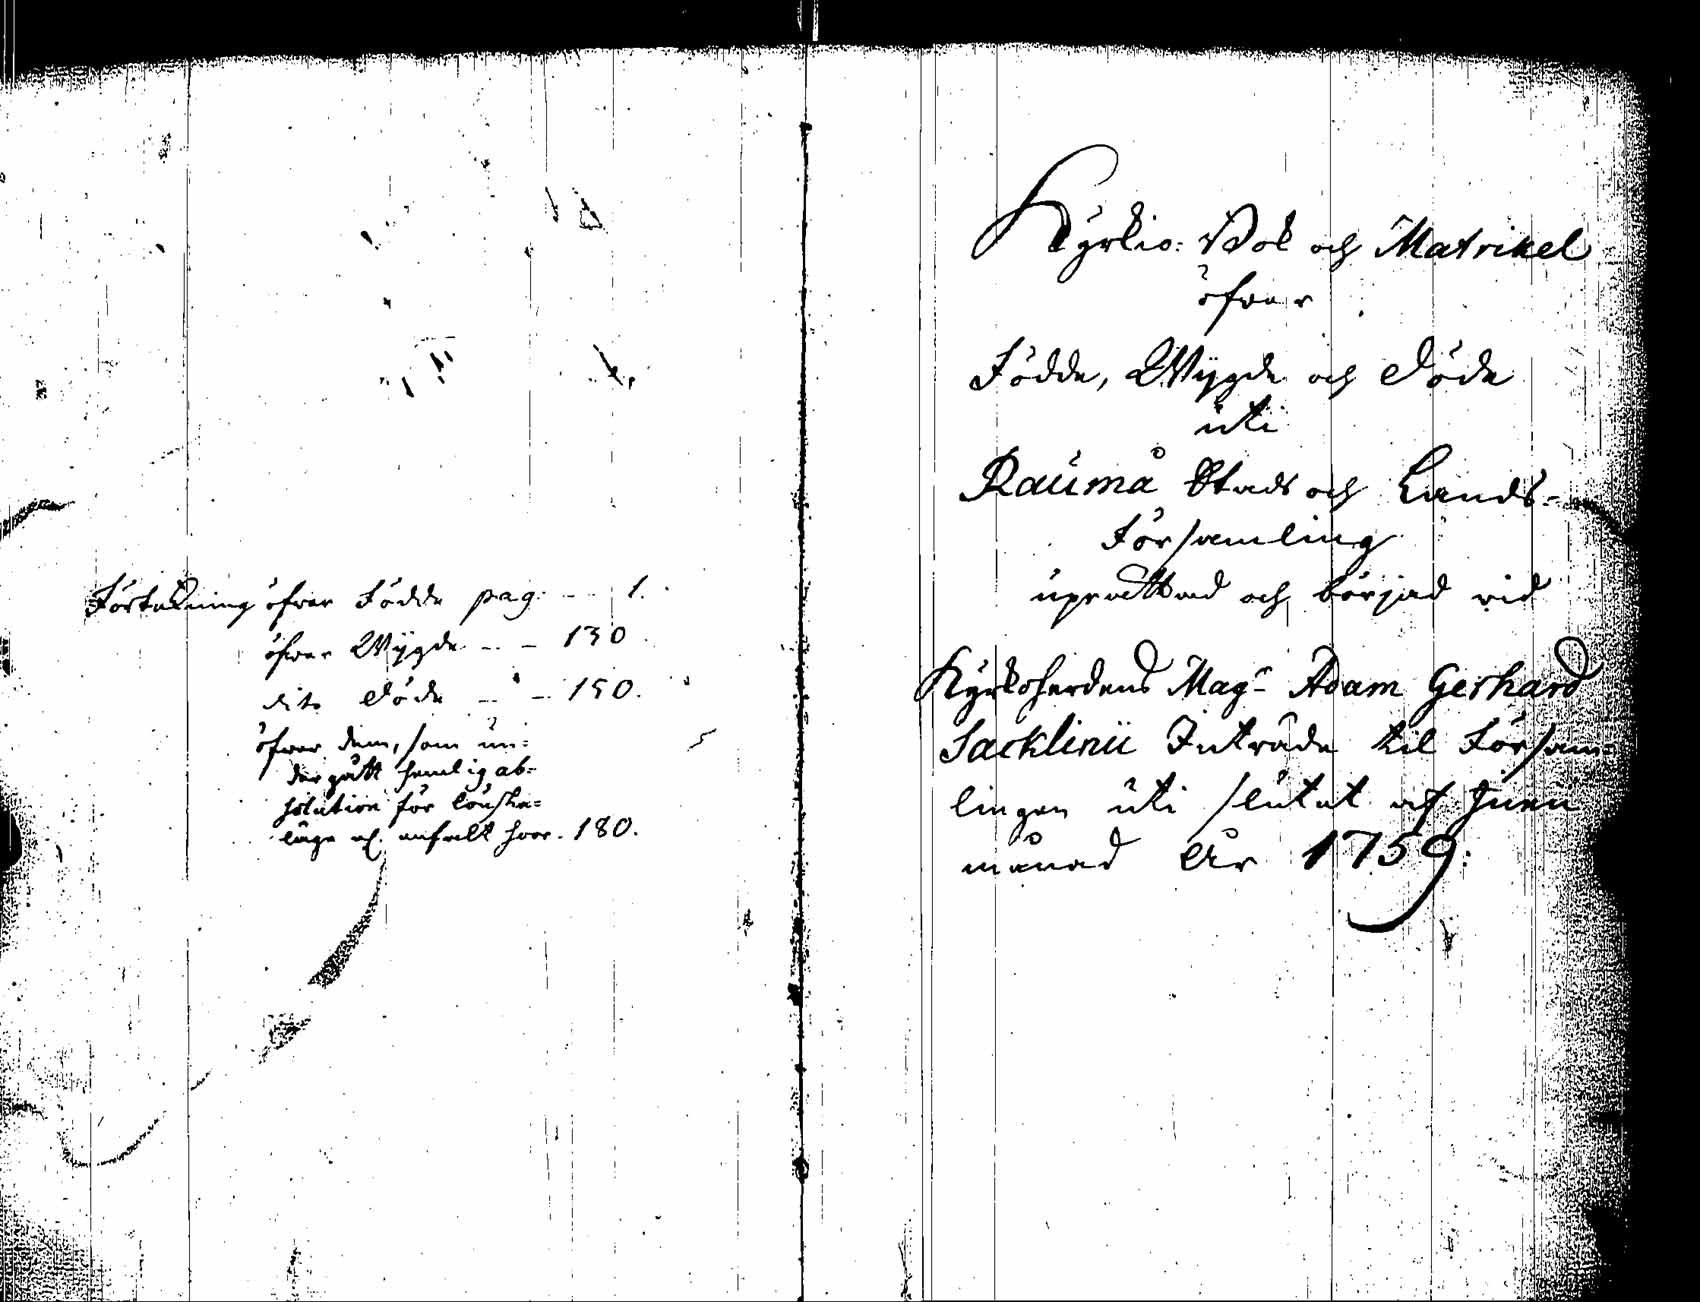 Förtekning öfver Födde pag. - - 1.
öfver Wÿgde - - 130
dito Döde - - 150.
öfver dem, som un=
dergått hemlig ab=
solution för
hvar. 180.
Kÿrkio: Bok och Matrikel
öfver
Födde, Wÿgde och Döde
uti
Raumå Stads och Lands-
Församling
uprättad och börjad vid
Kÿrkoherdens Mag:r Adam Gerhard
Sacklinii Inträde til Försam=
lingen uti slutet af Junii
månad År 1759: